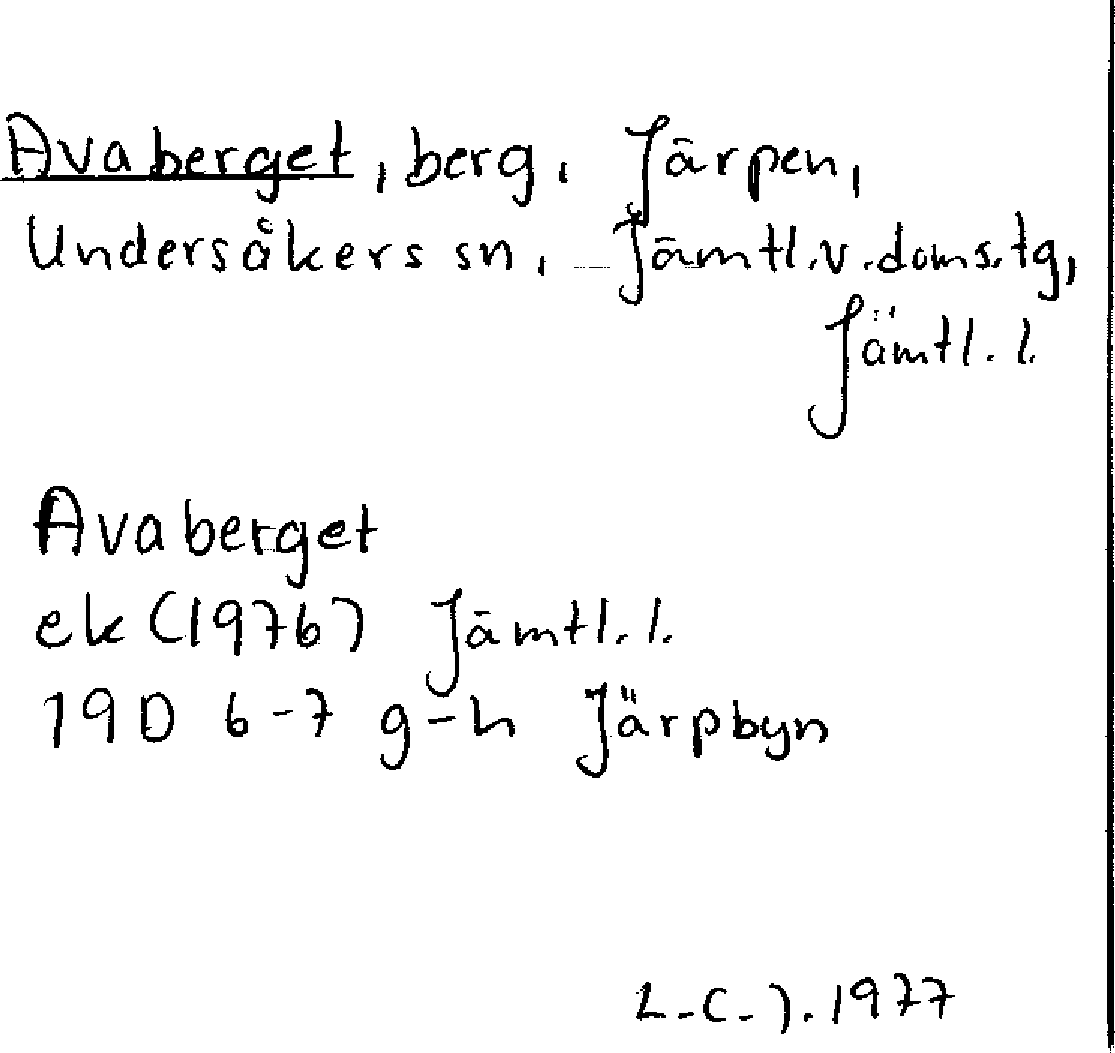 Avaberget, berg, Järpen,
Undersåkers sn, Jämtl.v.doms.tg,
Jämtl. l.
Avaberget
ek (1976) Jämtl. l.
19D 6-7 g-h Järpbyn
L-C-J. 1977